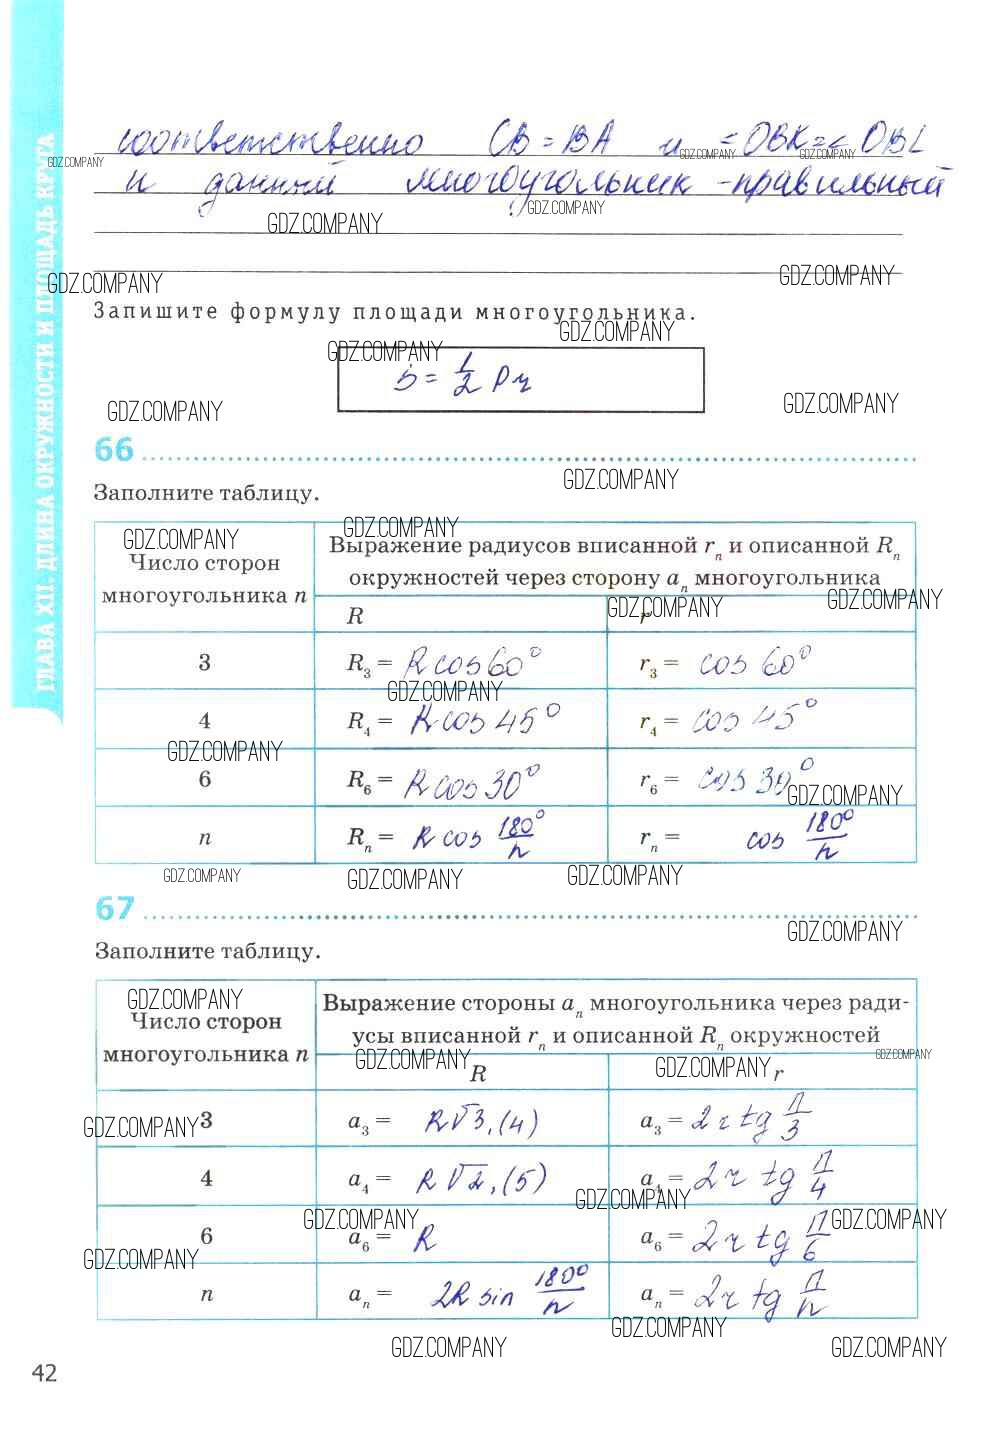 соответственно CB = BA и < OBK = < OBL
и данный многоугольник - правильный
Запишите формулу площади многоугольника.
S = 1/2 Pr
66
Заполните таблицу.
Число сторон многоугольника n
Выражение радиусов вписанной rₙ и описанной Rₙ
окружностей через сторону aₙ многоугольника
R r
3 R₃ = R cos 60° r₃ = cos 60°
4 R₄ = R cos 45° r₄ = cos 45°
6 R₆ = R cos 30° r₆ = cos 30°
n Rₙ = R cos 180°/n rₙ = cos 180°/n
67
Заполните таблицу.
Число сторон многоугольника n
Выражение стороны aₙ многоугольника через ради-
усы вписанной rₙ и описанной Rₙ окружностей
R r
3 a₃ = R√3, (4) a₃ = 2r tg П/3
4 a₄ = R√2, (5) a₄ = 2r tg П/4
6 a₆ = R a₆ = 2r tg П/6
n aₙ = 2R sin 180°/n aₙ = 2r tg П/n
42
ГЛАВА XII. ДЛИНА ОКРУЖНОСТИ И ПЛОЩАДЬ КРУГА
GDZ.COMPANY